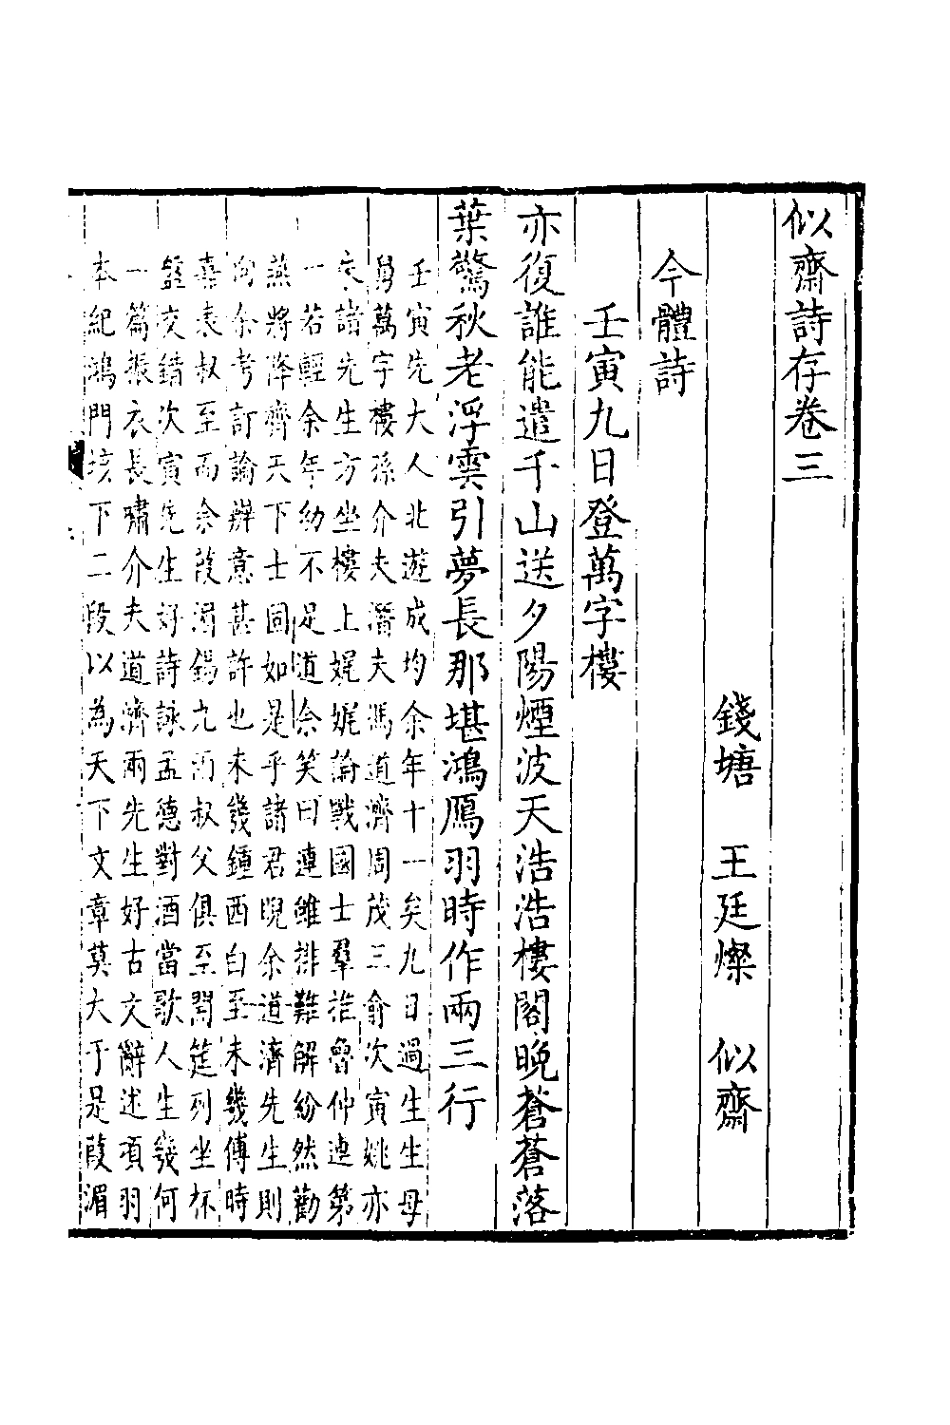 似齋詩存卷三
錢塘 王廷燦 似齋
今體詩
壬寅九日登萬字樓
亦復誰能遣千山送夕陽煙波天浩浩樓閣晚蒼蒼落
葉驚秋老浮雲引夢長那堪鴻鴈羽時作兩三行
壬寅先大人北遊成均余年十一矣九日過生生母
舅萬字樓孫介夫濳夫馮道濟周茂三俞次寅姚亦
方諸先生方坐樓上娓娓論戰國士羣推魯仲連第
一若輕余年幼不足道余笑曰連雖排難解紛然勸
燕將降齊天下士固如是乎諸君睨余道濟先生則
向余考訂論辨意甚許也未幾鍾西白至未幾傅時
嘉表叔至而余葭湄錫九兩叔父俱至開筵列坐杯
盤交錯次寅先生好詩詠孟德對酒當歌人生幾何
一篇振衣長嘯介夫道濟兩先生好古文辭述項羽
本紀鴻門垓下二段以為天下文章莫大于是葭湄